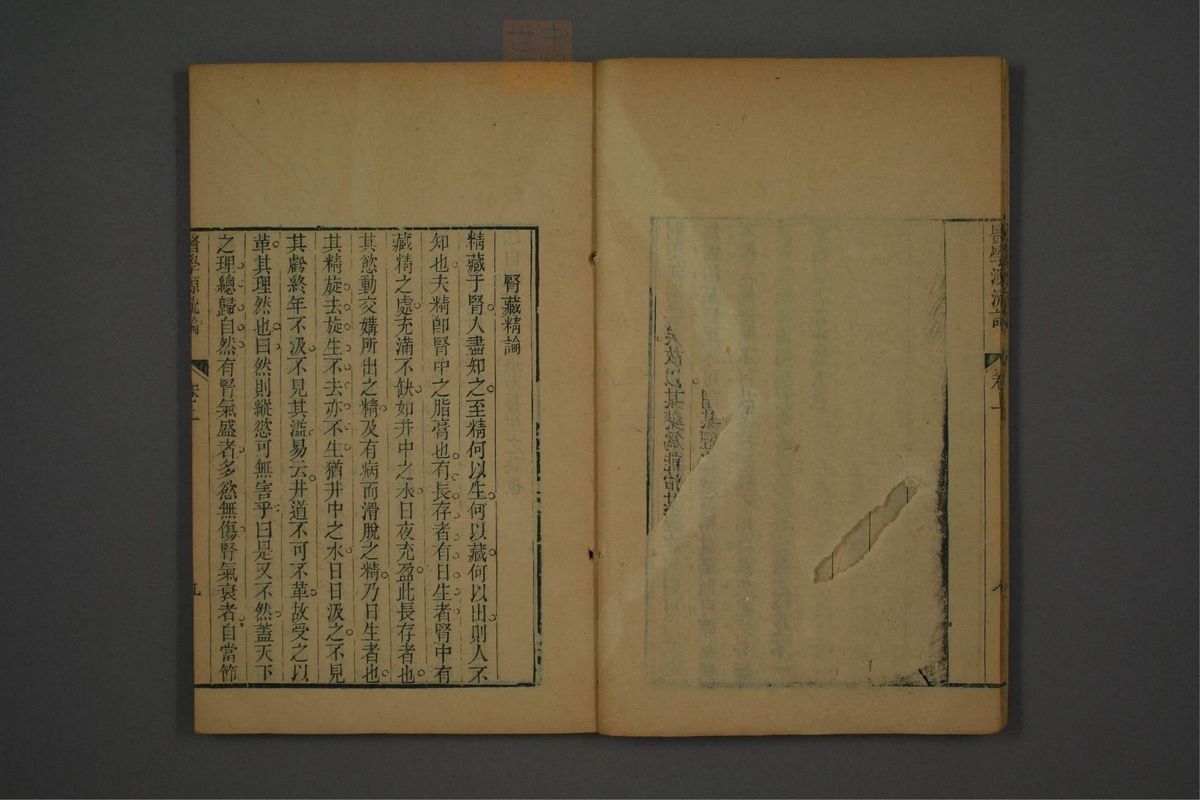 醫學源流論 卷一
某經
故以某藥爲能治某
腎藏精論
精藏于腎人盡知之至精何以生何以藏何以出則人不
知也夫精卽腎中之脂膏也有長存者有日生者腎中有
藏精之處充滿不缺如井中之水日夜充盈此長存者也
其慾動交媾所出之精及有病而滑脫之精乃日生者也
其精旋去旋生不去亦不生猶井中之水日日汲之不見
其虧終年不汲不見其溢易云井道不可不革故受之以
革其理然也曰然則縱慾可無害乎曰是又不然蓋天下
之理總歸自然有腎氣盛者多慾無傷腎氣衰者自當節
醫學源流論 卷之一 九